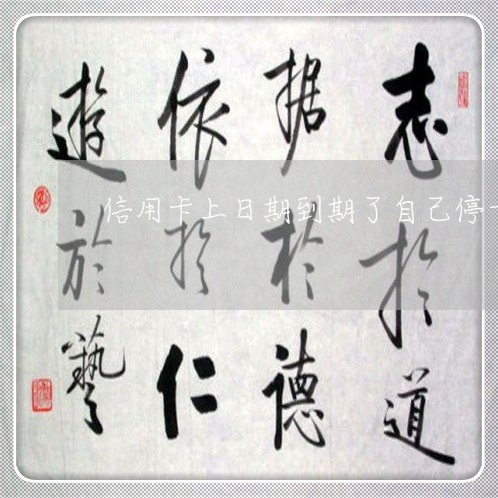 志於道
据於德
依於仁
遊於藝
信用卡上日期到期了自己停